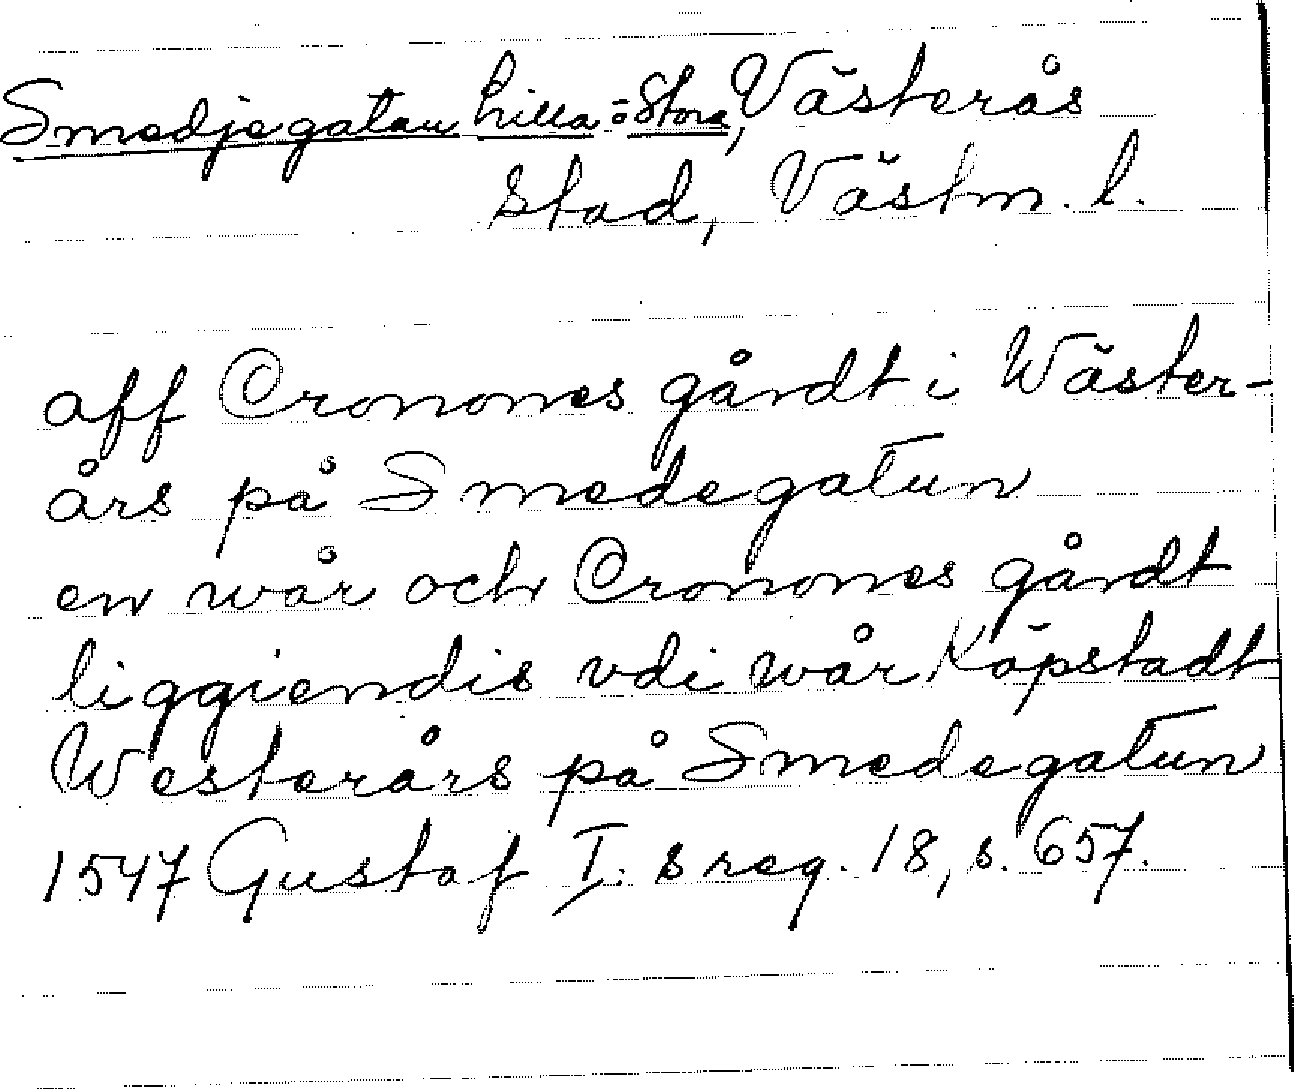 Smedjegatan Lilla- o Stora, Västerås
Stad, Västm. l.
aff Cronones gårdt i Wäster-
års på Smedegatun
en wår och Cronones gårdt
liggiendis vdi wår Köpstadt
Westerårs på Smedegatun
1547 Gustaf I. s reg. 18, s. 657.